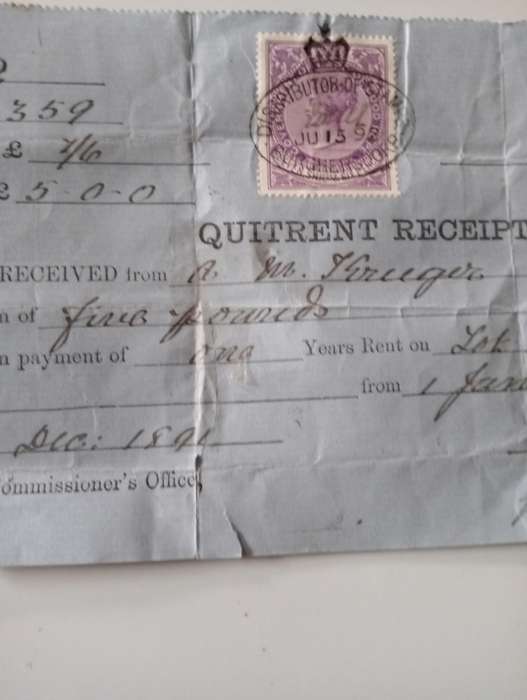 359
£ 2/6
£ 5-0-0
DISTRIBUTOR OF STAMPS
JU 15
QUITRENT RECEIPT
RECEIVED from A M. Kruger
n of five pounds
n payment of one Years Rent on Lot
from 1 Jan
Dec: 1891
ommissioner's Office,